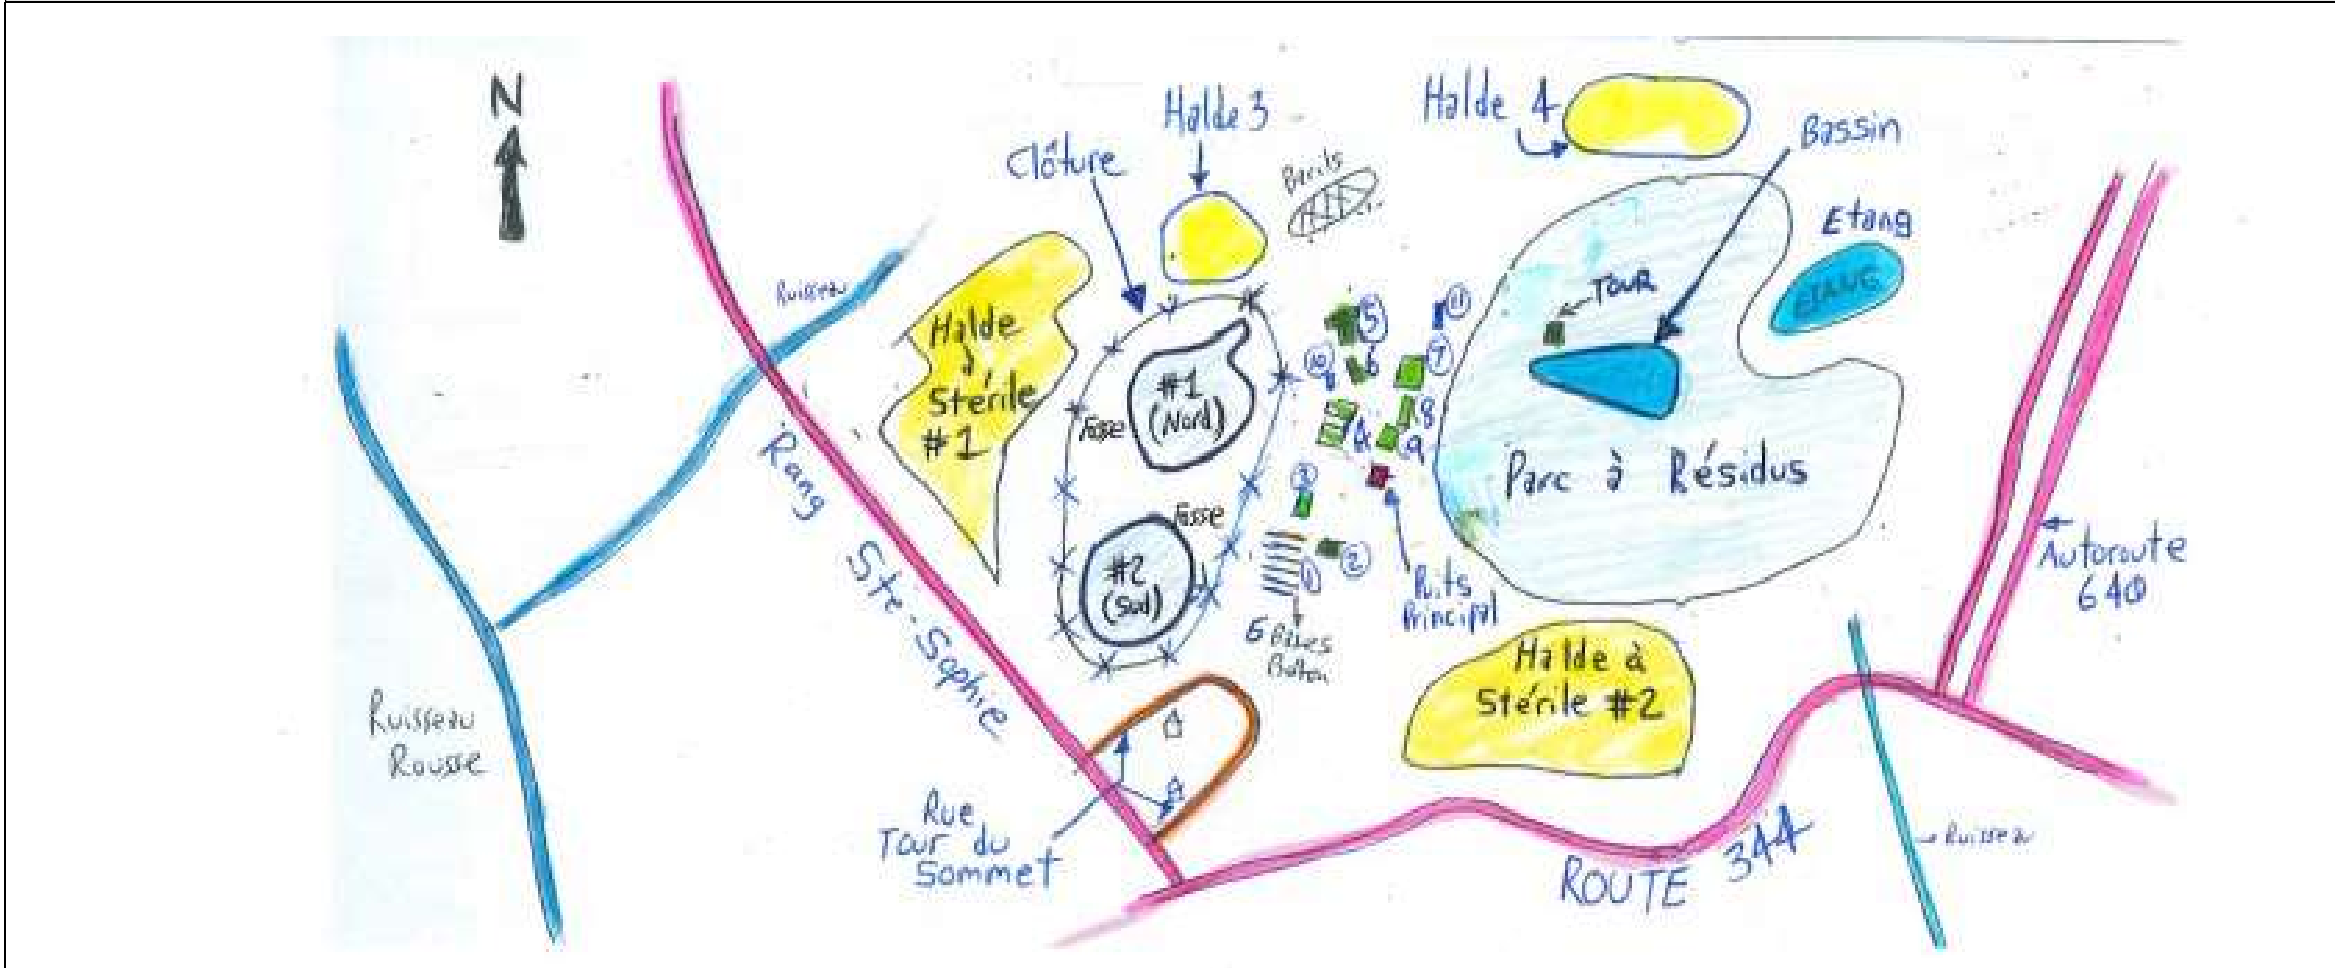 N
Halde 3
Halde 4
Bassin
Clôture
Barils
Etang
ETANG
Ruisseau
TOUR
Halde
à
Stérile
#1
5
11
10
6
7
#1
(Nord)
Fosse
8
9
Parc à Résidus
3
Fosse
#2
(Sud)
2
1
Puits
Principal
Autoroute
640
Rang Ste-Sophie
6 Bases
Béton
Halde à
Stérile #2
Ruisseau
Rousse
Rue
Tour du
Sommet
ROUTE 344
Ruisseau